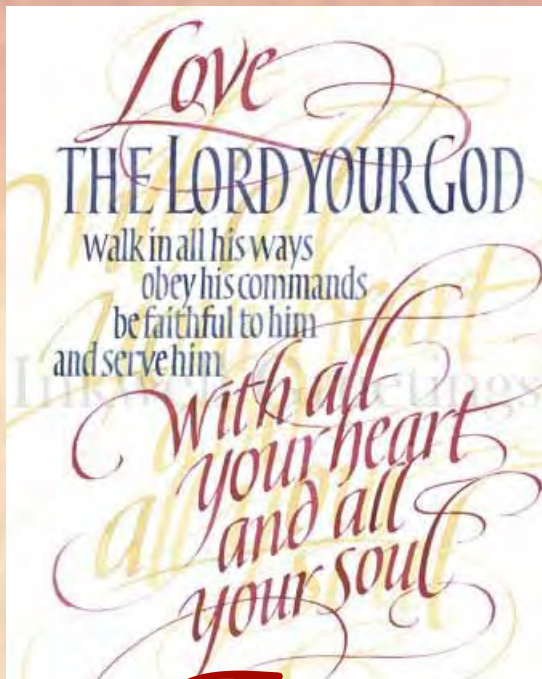 Love
THE LORD YOUR GOD
walk in all his ways
obey his commands
be faithful to him
and serve him
Inkwell Greetings
with all
your heart
and all
your soul